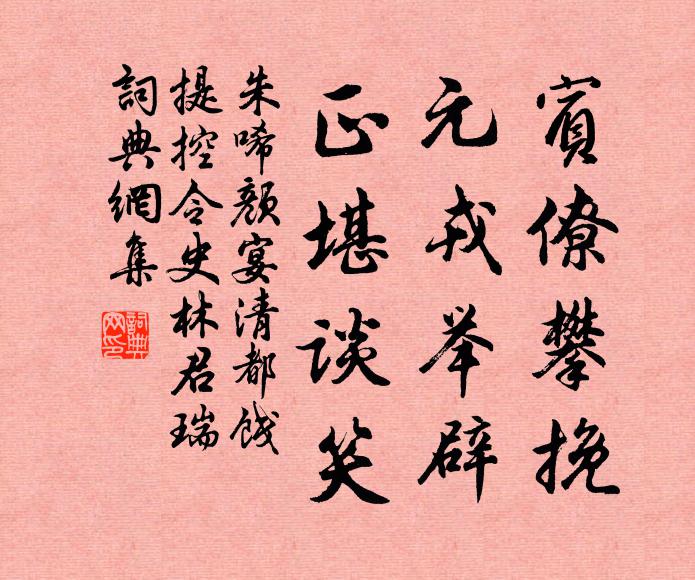 賓僚攀挽
元戎举辟
正堪谈笑
朱唏顏宴清都餞
提控令史林君瑞
詞典網集
詞典網印